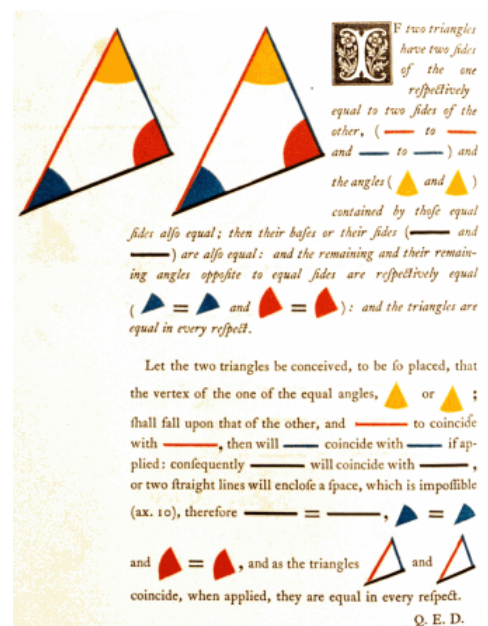 IF two triangles
have two ſides
of the one
reſpectively
equal to two ſides of the
other, ( to
and to ) and
the angles ( and )
contained by thoſe equal
ſides alſo equal; then their baſes or their ſides ( and
) are alſo equal: and the remaining and their remain-
ing angles oppoſite to equal ſides are reſpectively equal
( = and = ): and the triangles are
equal in every reſpect.
Let the two triangles be conceived, to be ſo placed, that
the vertex of the one of the equal angles, or ;
ſhall fall upon that of the other, and to coincide
with , then will coincide with if ap-
plied: conſequently will coincide with ,
or two ſtraight lines will encloſe a ſpace, which is impoſſible
(ax. 10), therefore = , =
and = , and as the triangles and
coincide, when applied, they are equal in every reſpect.
Q. E. D.